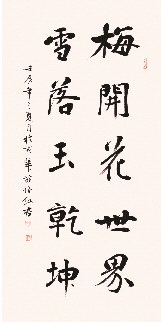 梅開花世界
雪落玉乾坤
壬辰年之夏月於